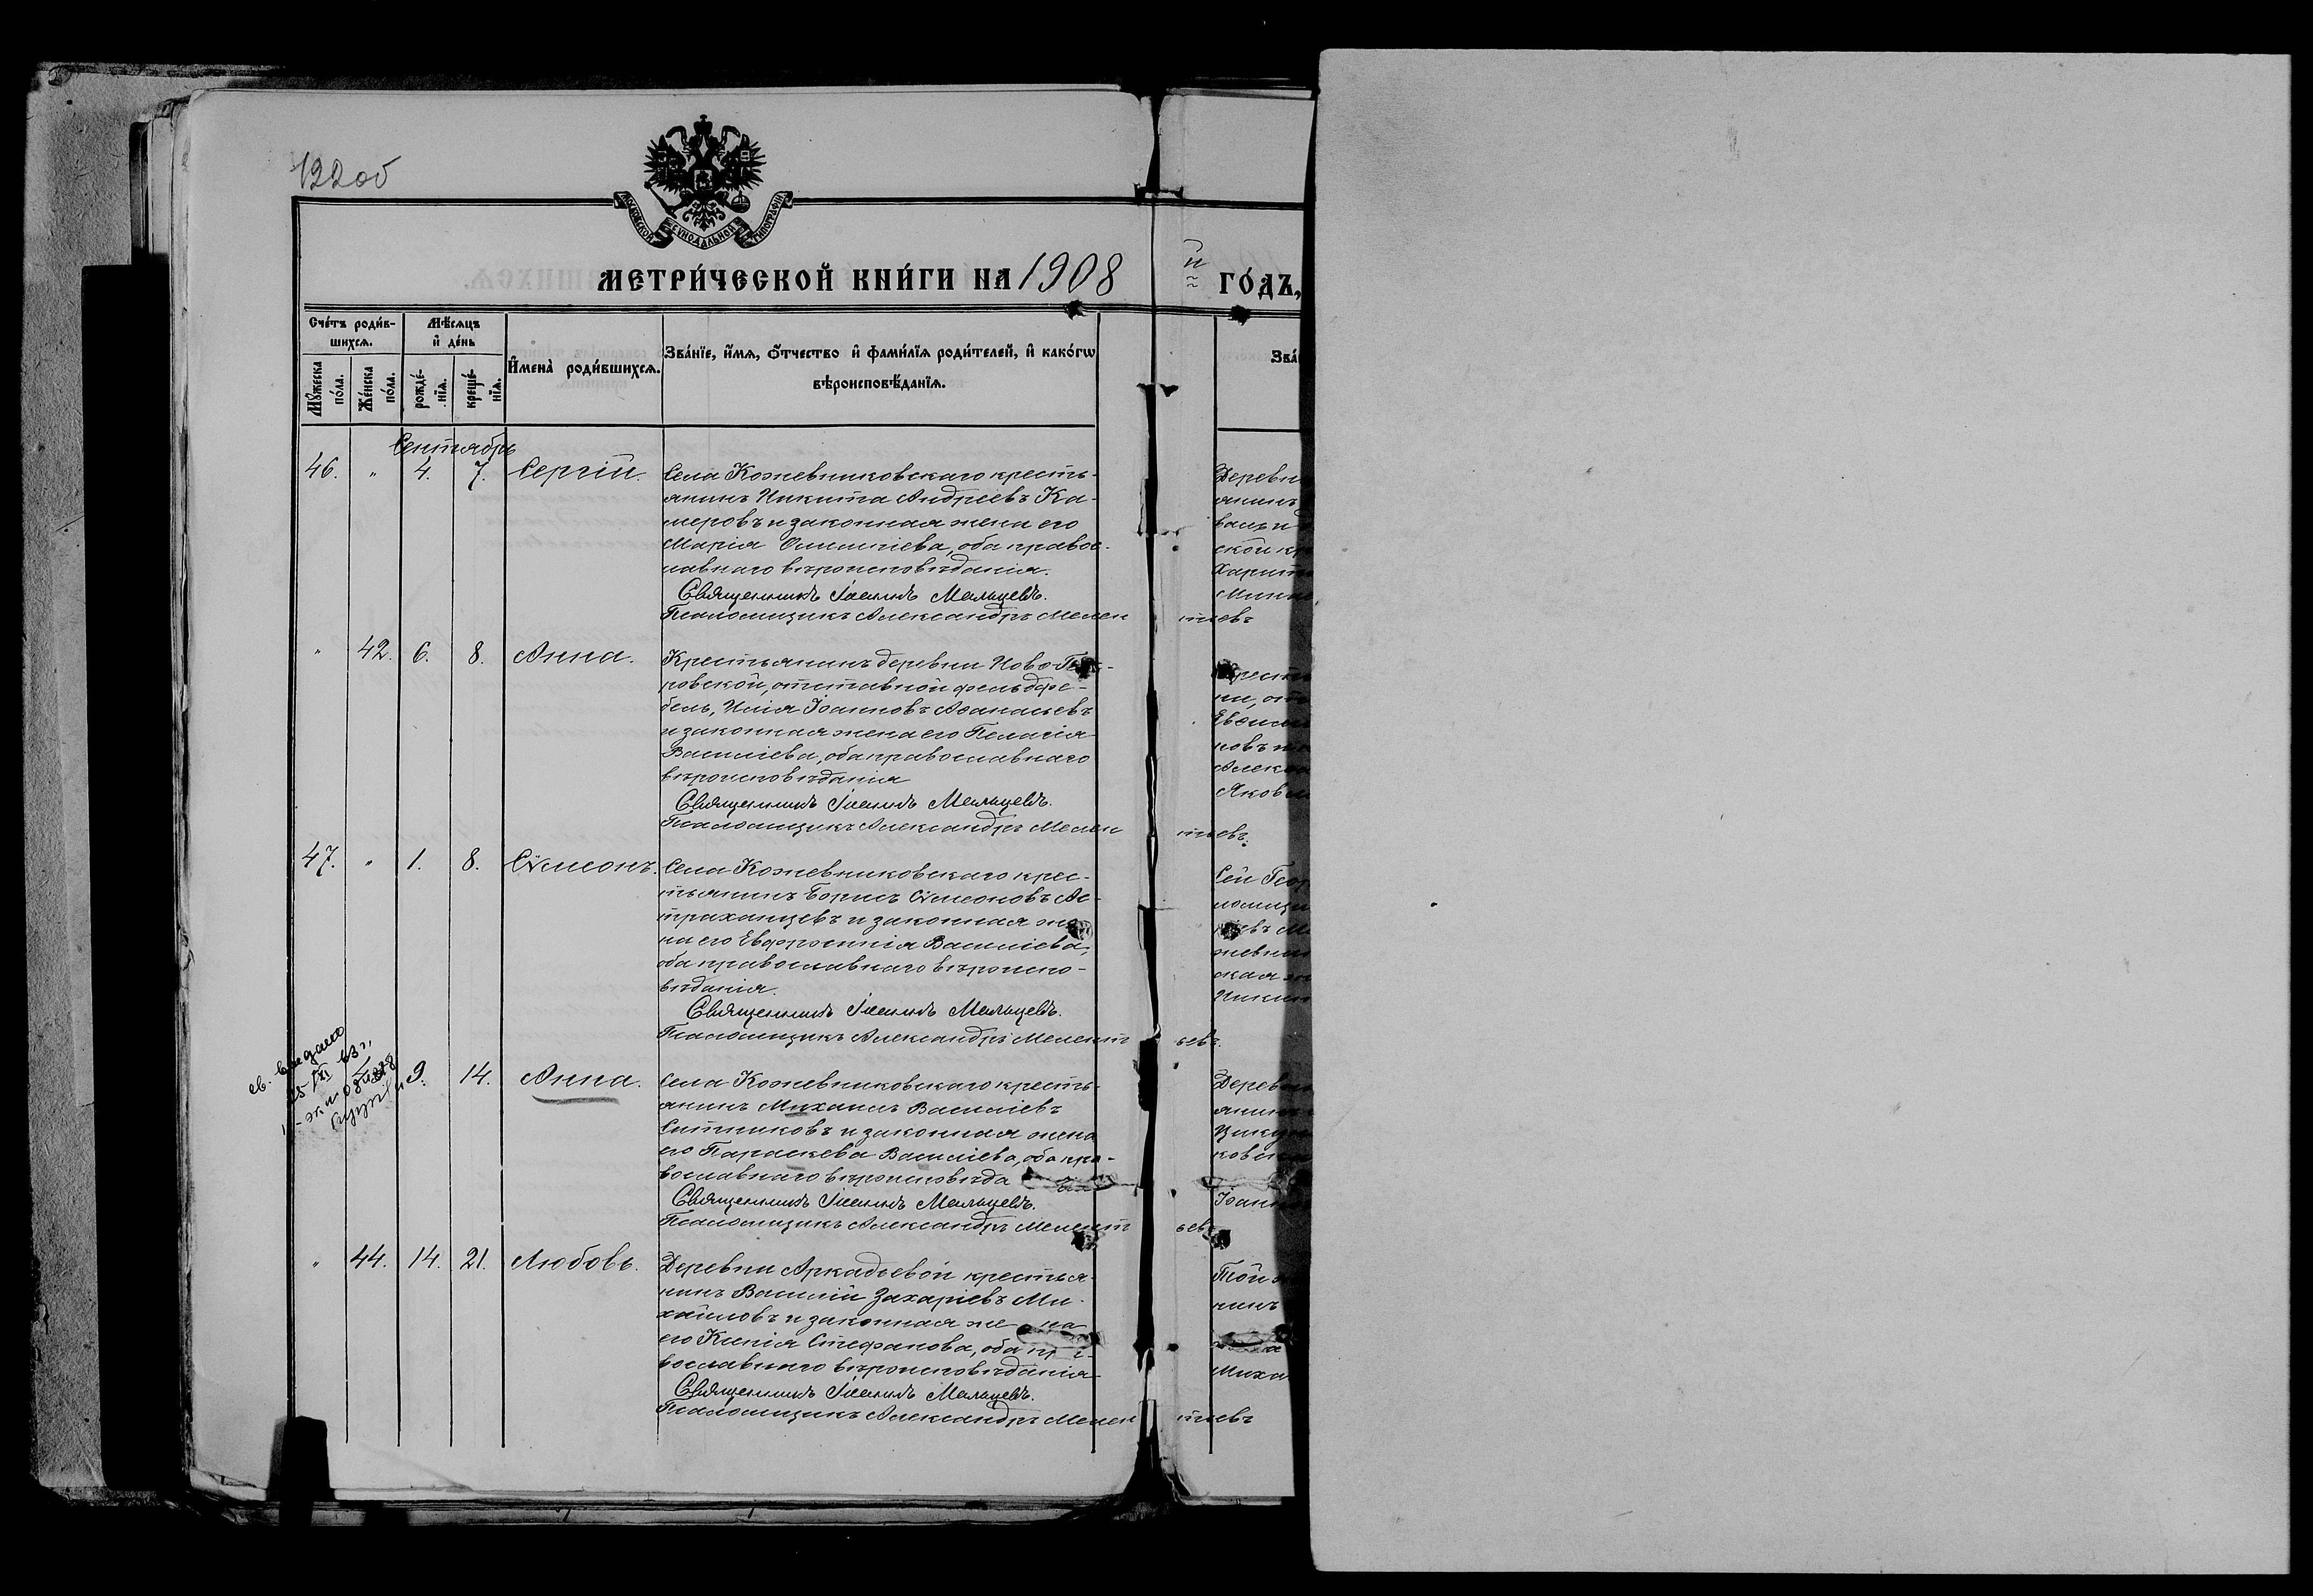 122об
МОСКОВСКОЙ СѴНОДАЛЬНОЙ ТИПОГРАФІИ
МЕТРИ́ЧЕСКОЙ КНИ́ГИ НА 1908 й ГО́ДЪ,
Сче́тъ роди́в-
шихсѧ.
Мѣ́сѧцъ
и҆ де́нь
Мꙋ́жеска
по́ла.
Же́нска
по́ла.
рожде́-
нїѧ.
креще́-
нїѧ.
И҆мена̀ роди́вшихсѧ.
Зва́нїе, и҆́мѧ, ѻ҆́тчество и҆ фами́лїѧ роди́телей, и҆ како́гѡ
вѣроисповѣ́данїѧ.
Зва́
Сентябрь
46. " 4. 7. Сергій.
Села Кожевниковскаго кресть-
янинъ Никита Андреевъ Ка-
меровъ и законная жена его
Марія, оба правос-
лавнаго вѣроисповѣданія.
Священникъ Іоаннъ Мальцевъ.
Псаломщикъ Александръ Мелентьевъ
" 42. 6. 8. Анна.
Крестьянинъ деревни Ново-
ровской, отставной фельдфе-
бель, Илія Іоанновъ Аѳанасьевъ
и законная жена его Пелагія
Василіева, оба православнаго
вѣроисповѣданія
Священникъ Іоаннъ Мальцевъ.
Псаломщикъ Александръ Мелентьевъ.
47. " 1. 8. Сѵмеонъ.
Села Кожевниковскаго крес-
тьянинъ Борисъ Сѵмеоновъ Ас-
траханцевъ и законная же-
на его Евфросинія Василіева,
оба православнаго вѣроиспо-
вѣданія.
Священникъ Іоаннъ Мальцевъ.
Псаломщикъ Александръ Мелентьевъ.
св. выдано
9. 14. Анна.
Села Кожевниковскаго кресть-
янинъ Михаилъ Василіевъ
Ситниковъ и законная жена
его Параскева Василіева, оба пра-
вославнаго вѣроисповѣда
Священникъ Іоаннъ Мальцевъ.
Псаломщикъ Александръ Мелентьевъ
" 44. 14. 21. Любовь.
Деревни Аркадьевой крестья-
нинъ Василій Захаріевъ Ми-
хайловъ и законная жена
его Ксенія Стефанова, оба пра-
вославнаго вѣроисповѣданія
Священникъ Іоаннъ Мальцевъ.
Псаломщикъ Александръ Мелентьевъ
Деревн
янинъ
ской кр
Харит
Алекс
Яковл
Сей
Деревн
янин
Іоанн
Той
нинъ
Миха